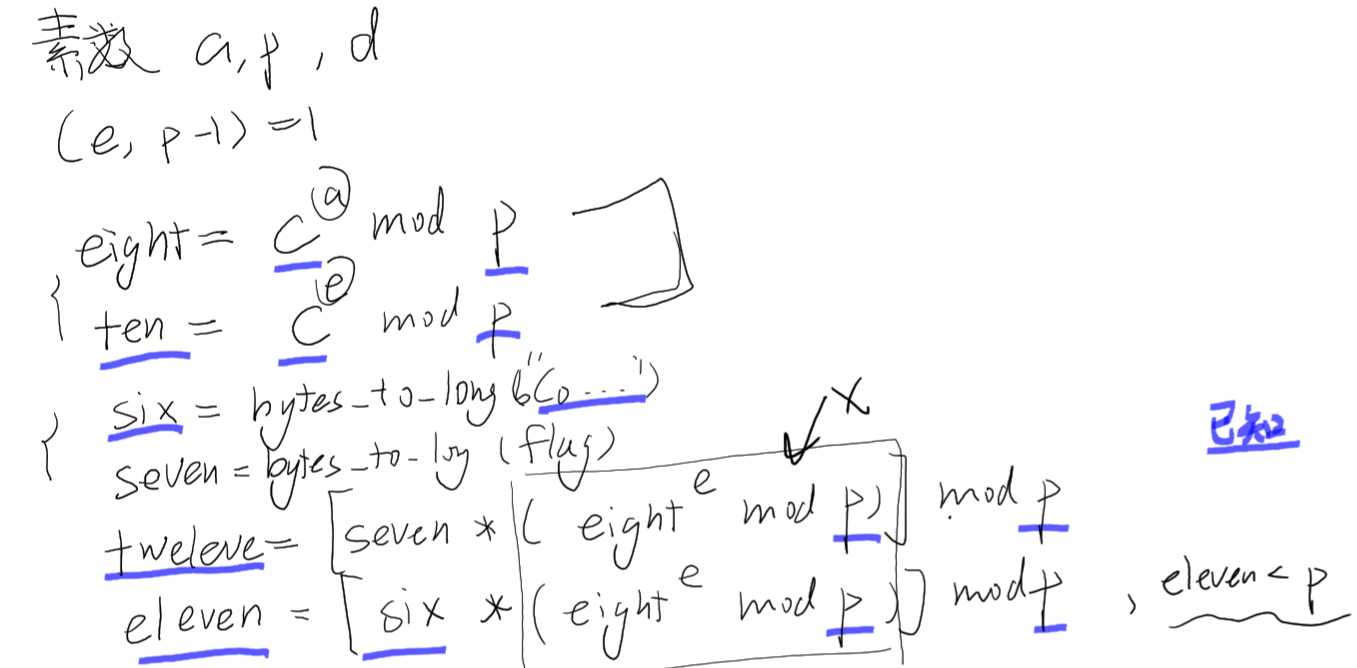 素数 a, p, d
(e, p-1) =1
eight = C^ⓐ mod p
ten = C^ⓔ mod p
six = bytes_to_long b"Co....")
seven = bytes_to_log (flag)
x
已知
tweleve= [seven * ( eight^e mod p)] mod p
eleven = [six * (eight^e mod p)] mod p , eleven < p